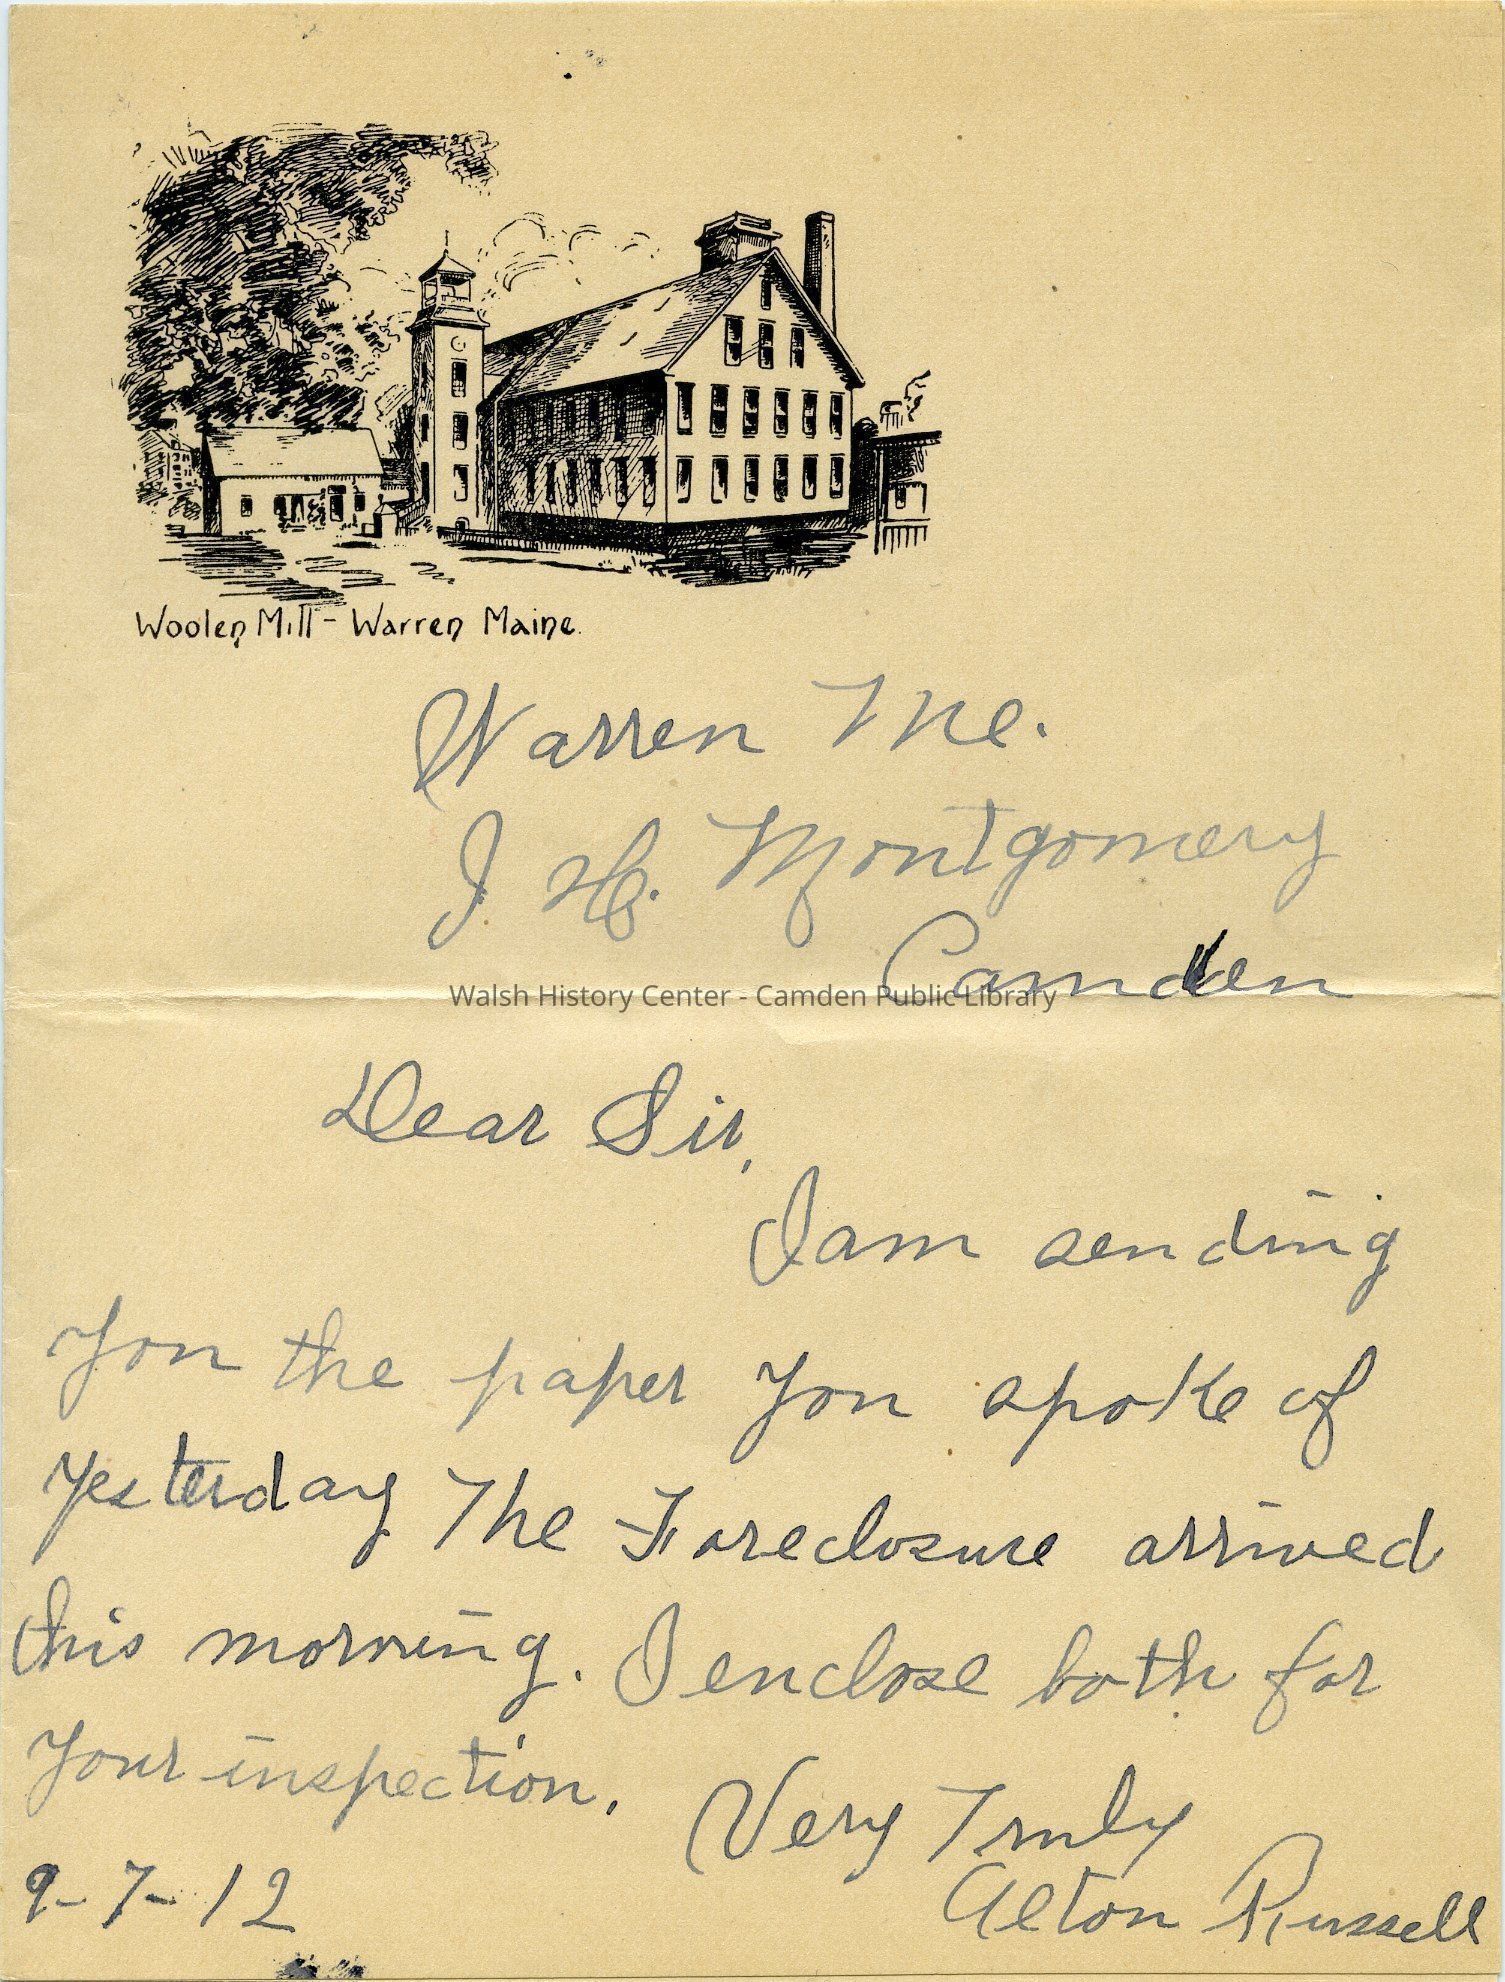 Woolen Mill - Warren Maine.
Warren Me.
J H. Montgomery
Camden
Walsh History Center - Camden Public Library
Dear Sir,
I am sending
you the paper you spoke of
yesterday The Foreclosure arrived
this morning. I enclose both for
your inspection.
Very Truly
Alton Russell
9-7-12